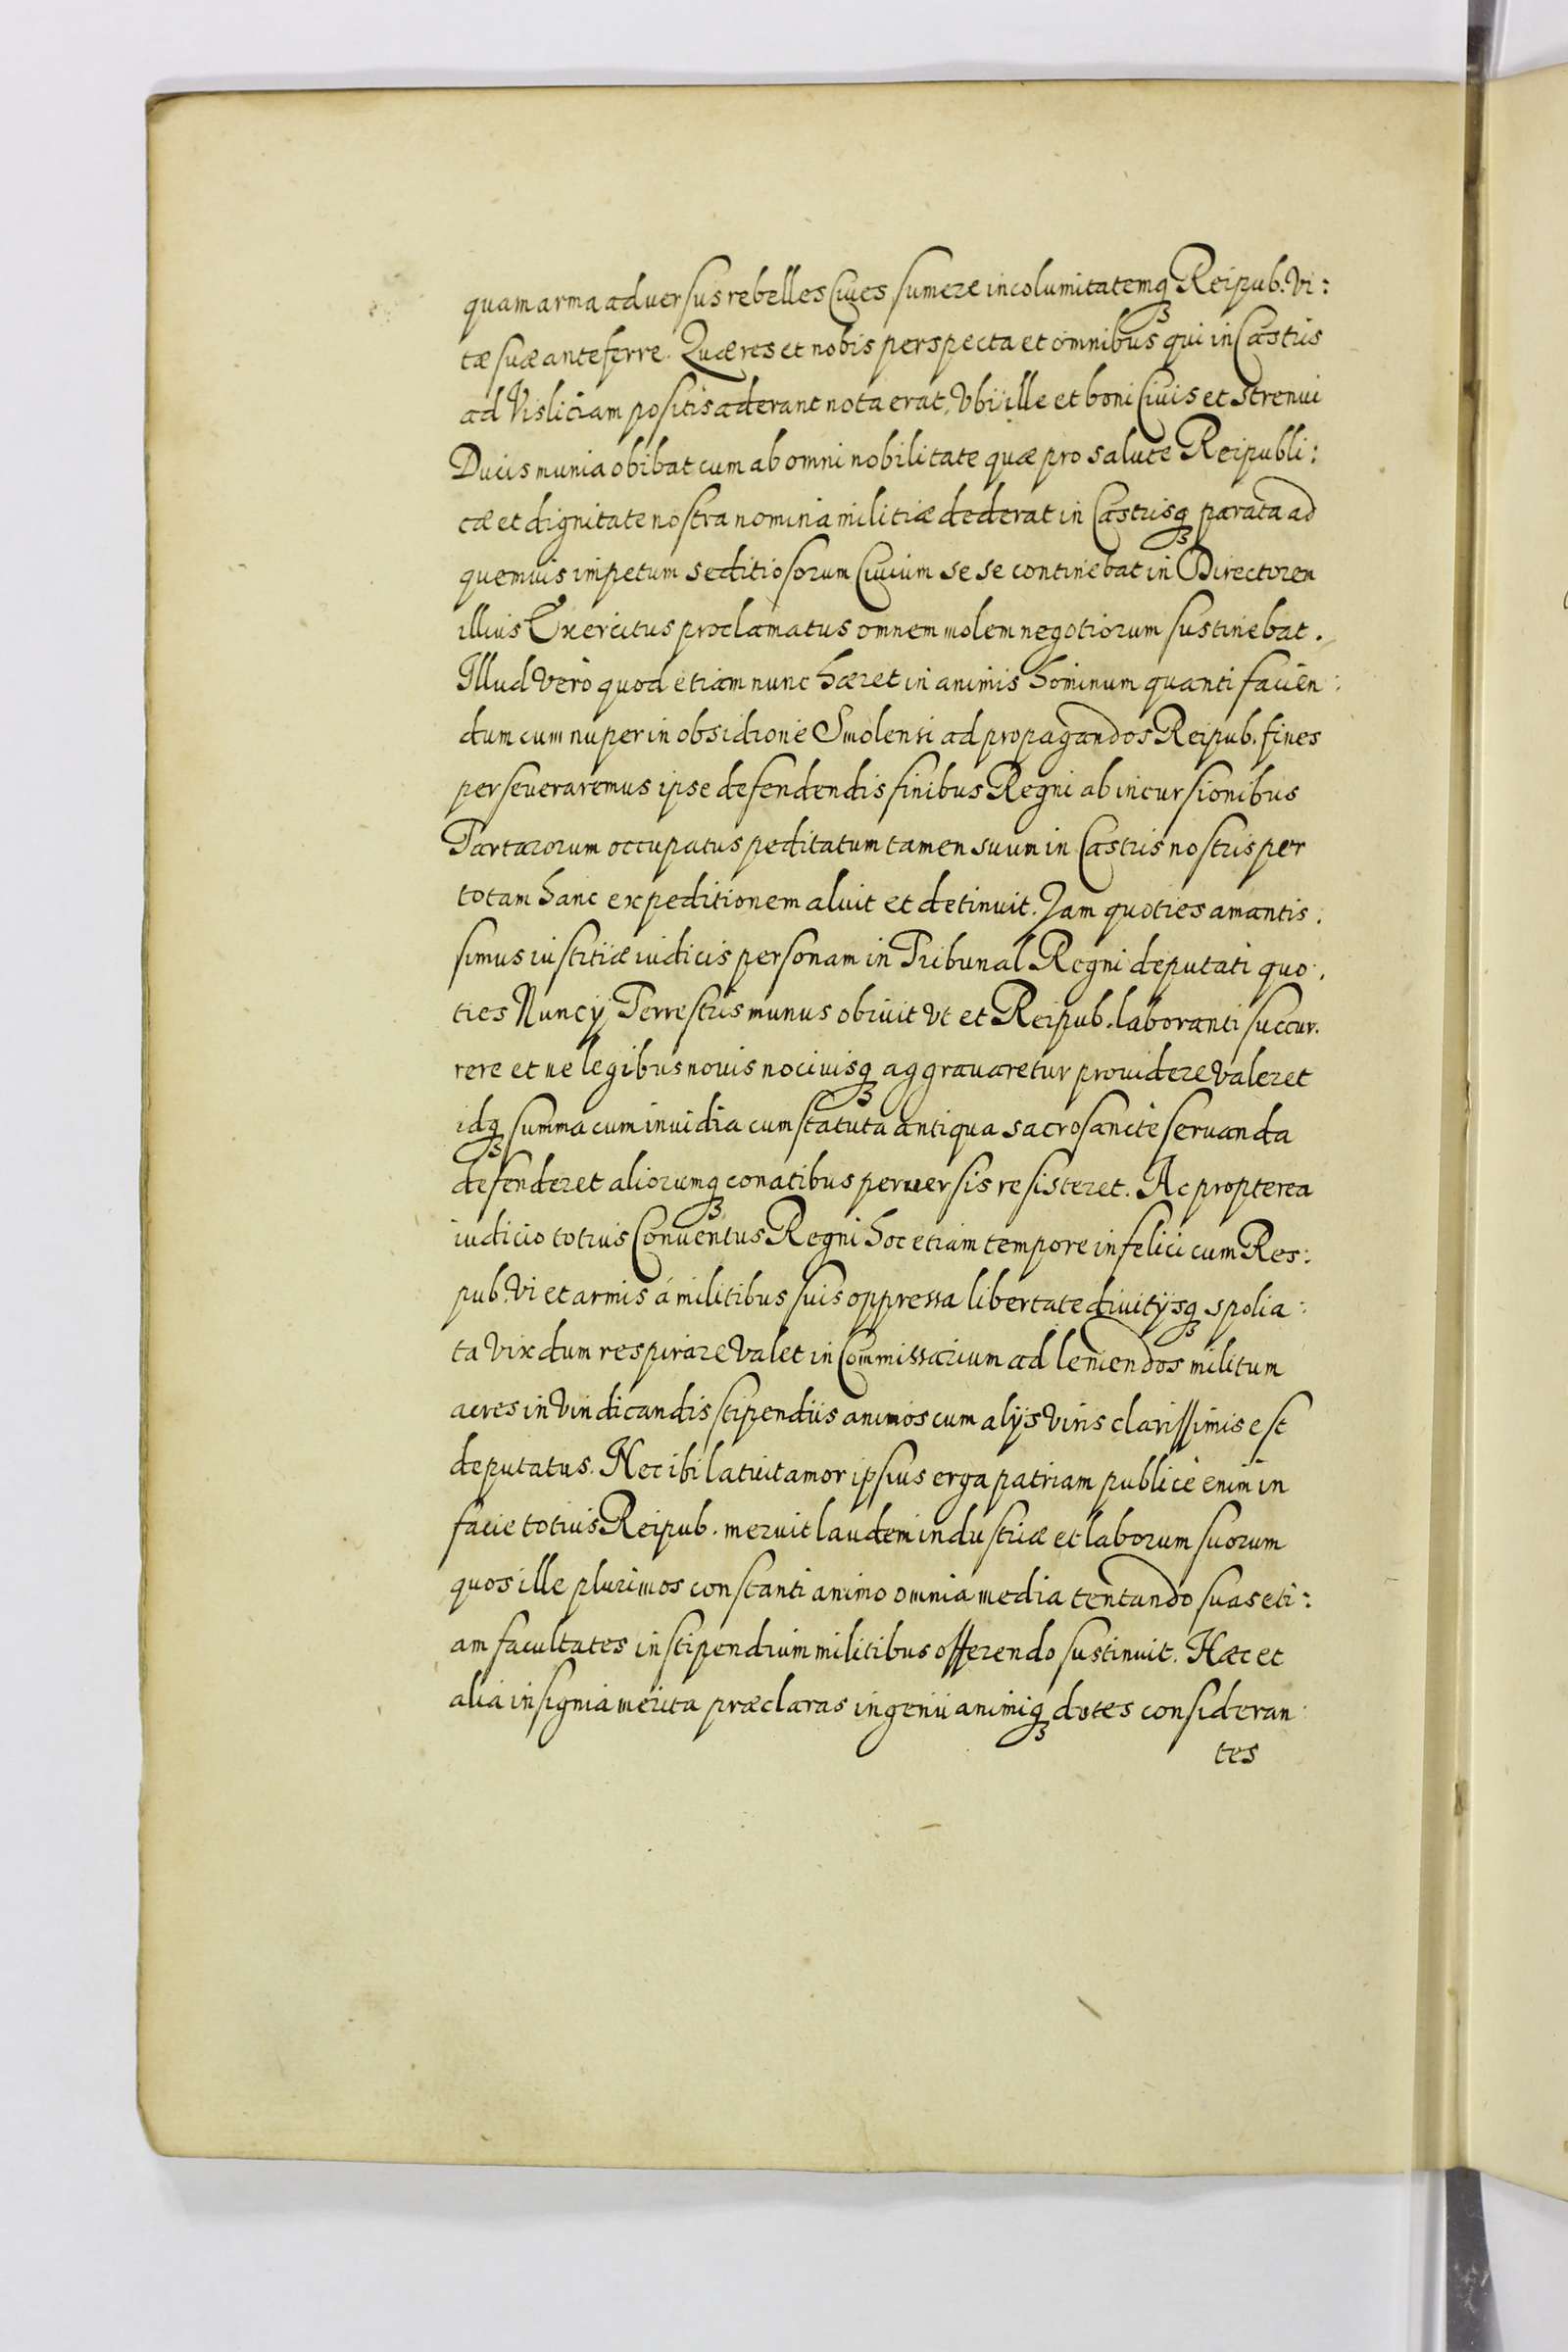 quam arma aduersus rebelles Ciues sumere incolumitatemq₃ Reipub. Vi:
tæ suæ anteferre. Quæ res et nobis perspecta et omnibus qui in Castris
ad Visliciam positis aderant nota erat, Vbi ille et boni Ciuis et strenui
Ducis munia obibat cum ab omni nobilitate quæ pro salute Reipubli:
cæ et dignitate nostra nomina militiæ dederat in Castrisq₃ parata ad
quemuis impetum seditiosorum Ciuium sese continebat in Directorem
illius Exercitus proclamatus omnem molem negotiorum sustinebat.
Illud Vero quod etiam nunc hæret in animis hominum quanti facien:
dum cum nuper in obsidione Smolensi ad propagandos Reipub. fines
perseueraremus ipse defendendis finibus Regni ab incursionibus
Tartarorum occupatus peditatum tamen suum in Castris nostris per
totam hanc expeditionem aluit et detinuit. Jam quoties amantis:
simus iustitiæ iudicis personam in Tribunal Regni deputati quo:
ties Nuncij Terrestris munus obiuit Vt et Reipub. laboranti succur:
rere et ne legibus nouis nociuisq₃ aggrauaretur prouidere Valeret
idq₃ summa cum inuidia cum statuta antiqua sacrosancte seruanda
defenderet aliorumq₃ conatibus peruersis resisteret. Ac propterea
iudicio totius Conuentus Regni hoc etiam tempore infelici cum Res:
pub. Vi et armis á militibus suis oppressa libertate diuitijsq₃ spolia:
ta Vix dum respirare Valet in Commissarium ad leniendos militum
acres in Vindicandis stipendiis animos cum alijs Viris clarissimis est
deputatus. Nec ibi latuit amor ipsius erga patriam publicè enim in
facie totius Reipub. meruit laudem industriæ et laborum suorum
quos ille plurimos constanti animo omnia media tentando suas eti:
am facultates in stipendium militibus offerendo sustinuit. Hæc et
alia insignia merita præclaras ingenii animiq₃ dotes consideran:
tes